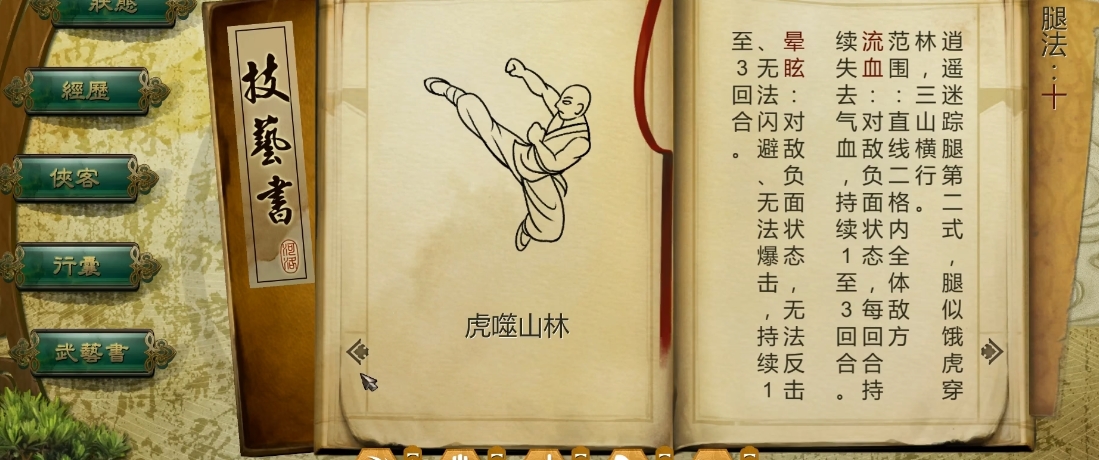 狀態
經歷
俠客
行囊
武藝書
技藝書
河洛
虎噬山林
腿法：十
逍遥迷踪腿第二式，腿似饿虎穿
林，三山横行。
范围：直线二格内全体敌方
流血：对敌负面状态，每回合持
续失去气血，持续1至3回合。
晕眩：对敌负面状态，无法反击
、无法闪避、无法爆击，持续1
至3回合。